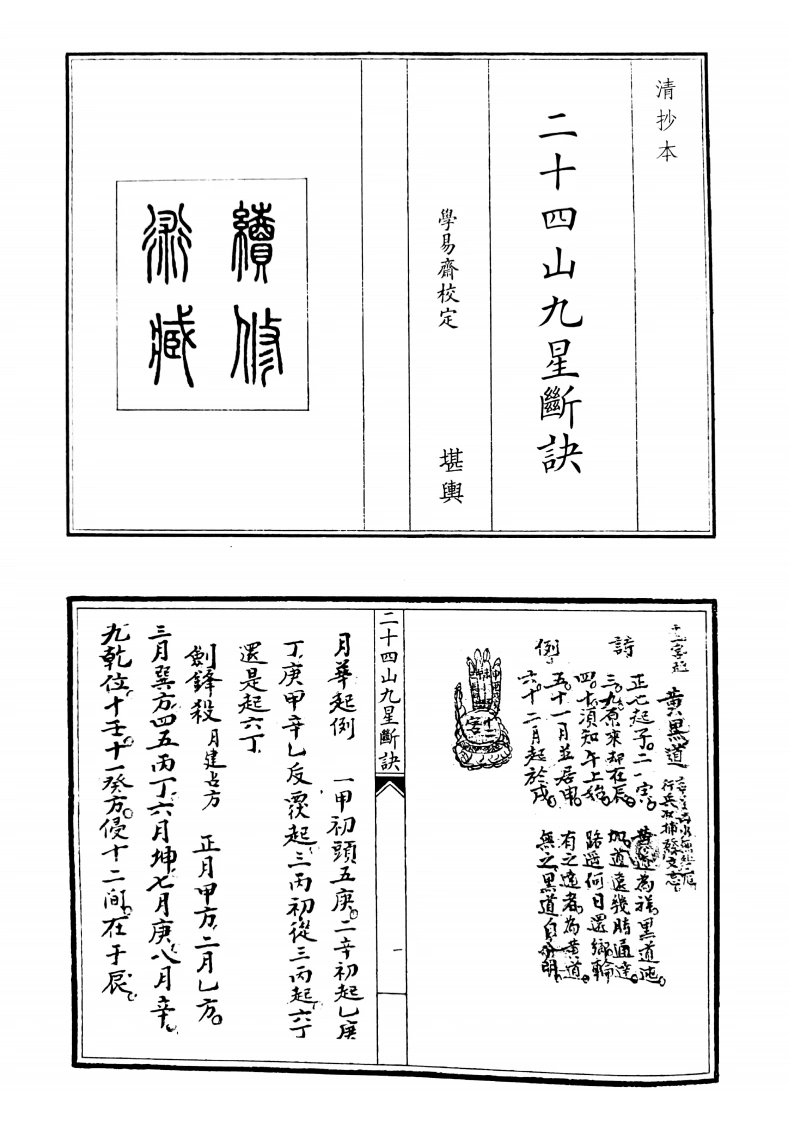 清抄本
二十四山九星斷訣
學易齋校定　堪輿
續修
術藏
黃黑道
詩例
正七起子二八寅　黃道為祥黑道凶
三九原來却在辰　道遠幾時通達
四十須知午上始　路遙何日還鄉
五十一月並居申　有之遶者為黃道
六十二月起於戌　無之黑道自分明
二十四山九星斷訣
一
月華起例　一甲初頭五庚二辛初起乙庚
丁庚甲辛乙反覆起三丙初從三丙起六丁
還是起六丁
劍鋒殺　月建占方　正月甲方二月乙方
三月巽方四五丙丁六月坤七月庚八月辛
九乾位十壬十一癸方侵十二間在于艮